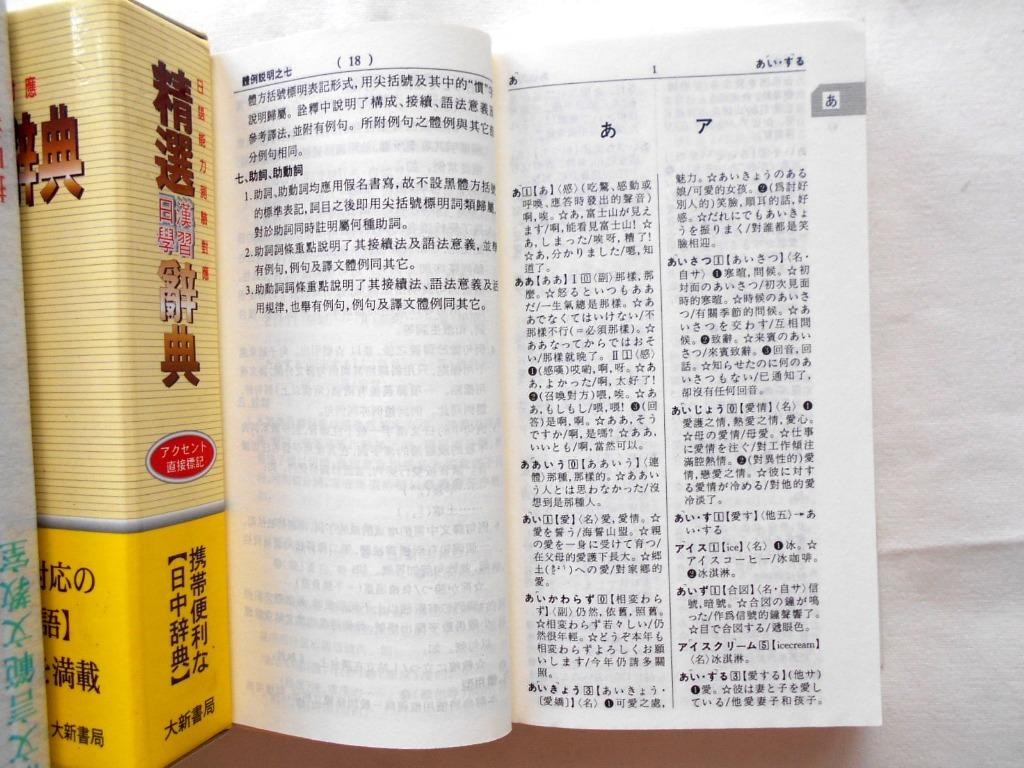 應
辭典
対応の
語】
を満載
大新書局
文言範文教室
日語能力測驗對應
精選
日學
漢習
辭典
アクセント
直接標記
携帯便利な
【日中辞典】
大新書局
體例説明之七
( 18 )
體方括號標明表記形式，用尖括號及其中的“慣”字
說明歸屬。詮釋中說明了構成、接續、語法意義及
參考譯法，並附有例句。所附例句之體例與其它部
分例句相同。
七、助詞、助動詞
1.助詞、助動詞均應用假名書寫，故不設黑體方括號
的標準表記，詞目之後即用尖括號標明詞類歸屬，
對於助詞同時註明屬何種助詞。
2.助詞詞條重點說明了其接續法及語法意義，並
有例句，例句及譯文體例同其它。
3.助動詞詞條重點說明了其接續法、語法意義及活
用規律，也舉有例句，例句及譯文體例同其它。
あ
1
あい・する
あ
あ
ア
あ 1【あ】〈感〉(吃驚、感動或
呼喚、應答時發出的聲音)
啊，唉。☆あ，富士山が見え
ます/啊，能看見富士山！☆
あ，しまった/唉呀，糟了！
☆あ，分かりました/嗯，知
道了。
ああ【ああ】Ⅰ0〈副〉那樣，那
麼。☆怒るといつもああ
だ/一生氣總是那樣。☆あ
あでなくてはいけない/不
那樣不行(＝必須那樣)。☆
ああなってからではおそ
い/那樣就晚了。Ⅱ1〈感〉
❶(感嘆)哎喲，啊，呀。☆あ
あ，よかった/啊，太好了！
❷(召喚對方)喂，唉。☆あ
あ，もしもし/喂，喂！❸(回
答)是啊，啊。☆ああ，そう
ですか/啊，是嗎？☆ああ，
いいとも/啊，當然可以。
ああいう 0【ああいう】〈連
體〉那種，那樣的。☆ああい
う人とは思わなかった/沒
想到是那種人。
あい 1【愛】〈名〉愛，愛情。☆
愛を誓う/海誓山盟。☆親
の愛を一身に受けて育つ/
在父母的愛護下長大。☆郷
土(きょうど)への愛/對家鄉的
愛。
あいかわらず 0【相変わら
ず】〈副〉仍然，依舊，照舊。
☆相変わらず若々しい/仍
然很年輕。☆どうぞ本年も
相変わらずよろしくお願
いします/今年仍請多關
照。
あいきょう 3【あいきょう・
〔愛嬌〕】〈名〉❶可愛之處，
魅力。☆あいきょうのある
娘/可愛的女孩。❷(爲討好
別人的)笑臉，順耳的話，好
感。☆だれにでもあいきょ
うを振りまく/對誰都是笑
臉相迎。
あいさつ 1【あいさつ】〈名・
自サ〉❶寒暄，問候。☆初
対面のあいさつ/初次見面
時的寒暄。☆時候のあいさ
つ/有關季節的問候。☆あ
いさつを交わす/互相問
候。❷致辭。☆来賓のあいさ
つ/來賓致辭。❸回音，回
話。☆知らせたのに何のあ
いさつもない/已通知了，
卻沒有任何回音。
あいじょう 0【愛情】〈名〉❶
愛護之情，熱愛之情，愛心。
☆母の愛情/母愛。☆仕事
に愛情を注ぐ/對工作傾注
滿腔熱情。❷(對異性的)愛
情，戀愛之情。☆彼に対す
る愛情が冷める/對他的愛
冷淡了。
あい・す 1【愛す】〈他五〉→あ
い・する
アイス 1【ice】〈名〉❶冰。☆
アイスコーヒー/冰咖啡。
❷冰淇淋。
あいず 1【合図】〈名・自サ〉信
號，暗號。☆合図の鐘が鳴
った/作爲信號的鐘聲響了。
☆目で合図する/遞眼色。
アイスクリーム 5【icecream】
〈名〉冰淇淋。
あい・する 3【愛する】〈他サ〉
❶愛。☆彼は妻と子を愛し
ている/他愛妻子和孩子。